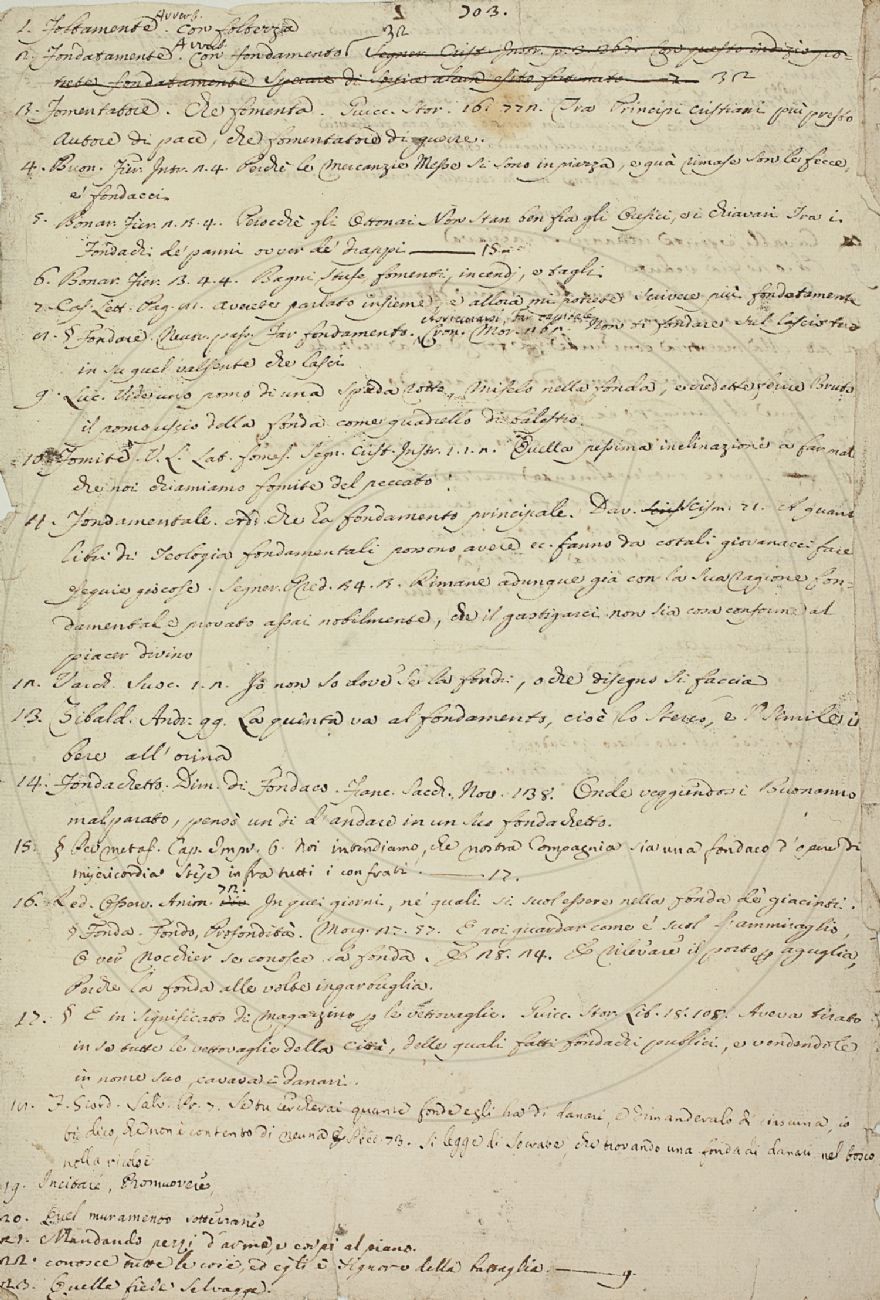 703.
1. Foltamente. Avverb. Con foltezza
2. Fondatamente. Avverb. Con fondamento. Segner. Crist. Instr. Con questo indizio po-
trete fondatamente sperare di alcun esito fortunato 32
3. Fomentatore. Che fomenta. Guicc. Stor. 16. 772. Tra Principi cristiani più presto
autore di pace, che fomentatore di guerre.
4. Buon. Fier. Intr. 2. 4. Perchè le mercanzie messe si sono in piazza, e quà rimase son le fecce,
e i fondacci
5. Bonar. Fier. 2. 3. 4. Perocchè gli Ottonai non stan ben fra gli Orefici, e i chiavari tra i
Fondachi de' panni ovver de' drappi 15
6. Bonar. Fier. 3. 4. 4. Bagni, stufe, fomenti, incendj, e tagli
7. Cas. Lett. Pag. averete parlato insieme, e allora mi potrete scrivere più fondatamente
§ Fondare. Neutr. pass. Far fondamento. Cron. Mor. Non ti fondare sul lascio
in su quel valsente che lasci
9. Luc. Vide uno pomo di una spada rotta, miselo nella fonda, e credette ferire Bruto
il pomo uscio della fonda come quadrello di balestro.
10. Fomite. V. L. Lat. fomes. Segn. Crist. Instr. 1. 1. 2. Quella pessima inclinazione a far mal
che noi chiamiamo fomite del peccato.
11. Fondamentale. Add. che ha fondamento principale. Dav. Scism. 71. A quanti
libri di Teologia fondamentali possono avere ec. fanno da cotali giovanacci fare
esequie giocose. Segner. Cred. Rimane adunque già con la sua ragione fon-
damentale provato assai nobilmente, che il gastigarci non sia cosa conforme al
piacer divino
12. Varch. Suoc. 1. 2. Io non so dove sè la fondi, o che disegno si faccia
13. Zibald. Andr. 99. La quinta va al fondamento, cioè lo sterco, e l' simile
bere all' orina
14. Fondachetto. Dim. di Fondaco. Franc. Sacch. Nov. 138. Onde veggiendosi Buonanno
malparato, pensò un dì d'andare in un suo fondachetto.
15. § Per metaf. Cap. Impr. 6. Noi intendiamo, che nostra compagnia sia una fondaco d' opere di
misericordia stese infra tutti i confrati. 17.
16. Red. Osserv. Anim. 72. In quei giorni, ne' quali si suol essere nella fonda de' giacinti.
§ Fonda. Fondo, Profondità. Morg. 27. 57. E poi guardar come e' suol l'ammiraglio,
O ver nocchier se conosce la fonda. E 28. 24. E rilevare il porto aguglia,
Perchè la fonda alle volte ingarbuglia.
17. § E in significato di magazzino le vettovaglie. Guicc. Stor. Lib. 18. 108. Aveva tirato
in se tutte le vettovaglie della città, delle quali fatti fondachi publici, e vendendole
in nome suo, cavava danari.
F. Giord. Salv. Pr. 7. Se tu cercherai quante fonde egli ha di danari, e dimanderalo di ciascuna, io
ti dico, che non è contento di neuna. E Pred. 73. Si legge di Socrate, che trovando una fonda di danari nel bosco
nolla ricolse
19. Incitare, Promuovere,
20. Quel muramento sotterraneo
21. Mandando pezzi d'arme e corpi al piano.
22. conosce tutte le cose, ed egli è signore della battaglia. 9.
23. Quelle fiere selvagge.